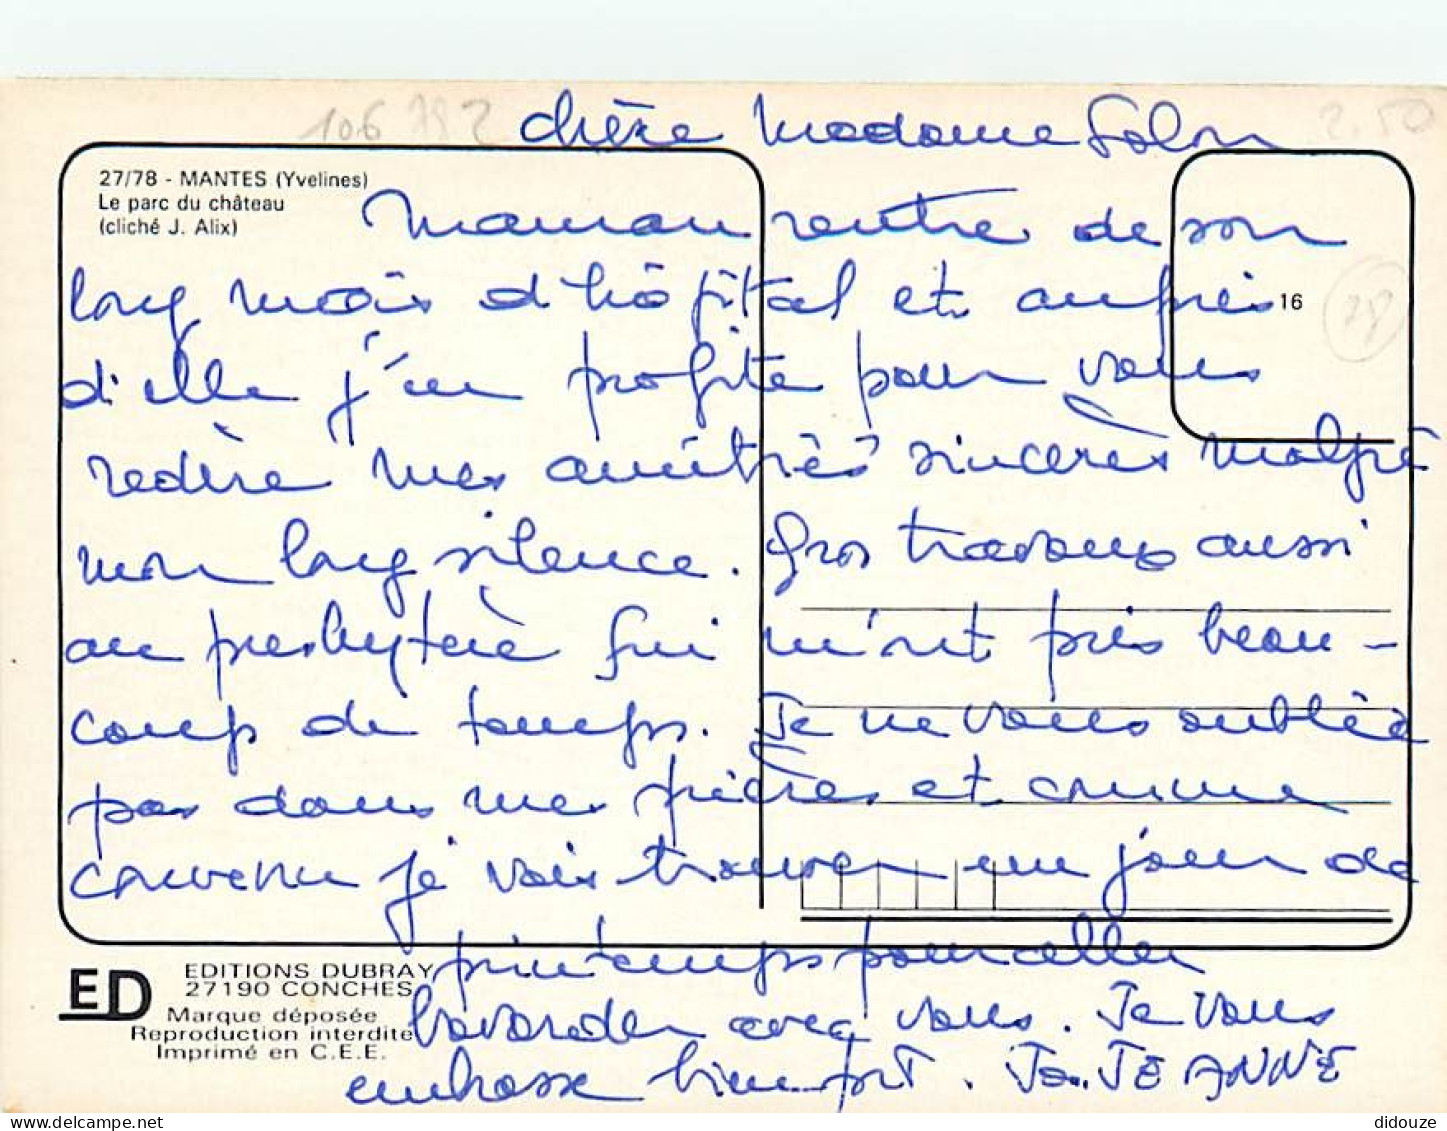 106 792
2.50
chère Madame Solon
27/78 - MANTES (Yvelines)
Le parc du château
(cliché J. Alix)
Maman rentre de son
long mois d'hôpital et auprès
16
28
d'elle j'en profite pour vous
redire mes amitiés sincères malgré
mon long silence. Gros travaux aussi
au presbytère qui m'ont pris beau-
coup de temps. Je ne vous oublie
pas dans mes prières et comme
convenu je vais trouver un jour de
printemps pour aller
bavarder avec vous. Je vous
embrasse bien fort. JEANNE
ED
EDITIONS DUBRAY
27190 CONCHES
Marque déposée
Reproduction interdite
Imprimé en C.E.E.
didouze